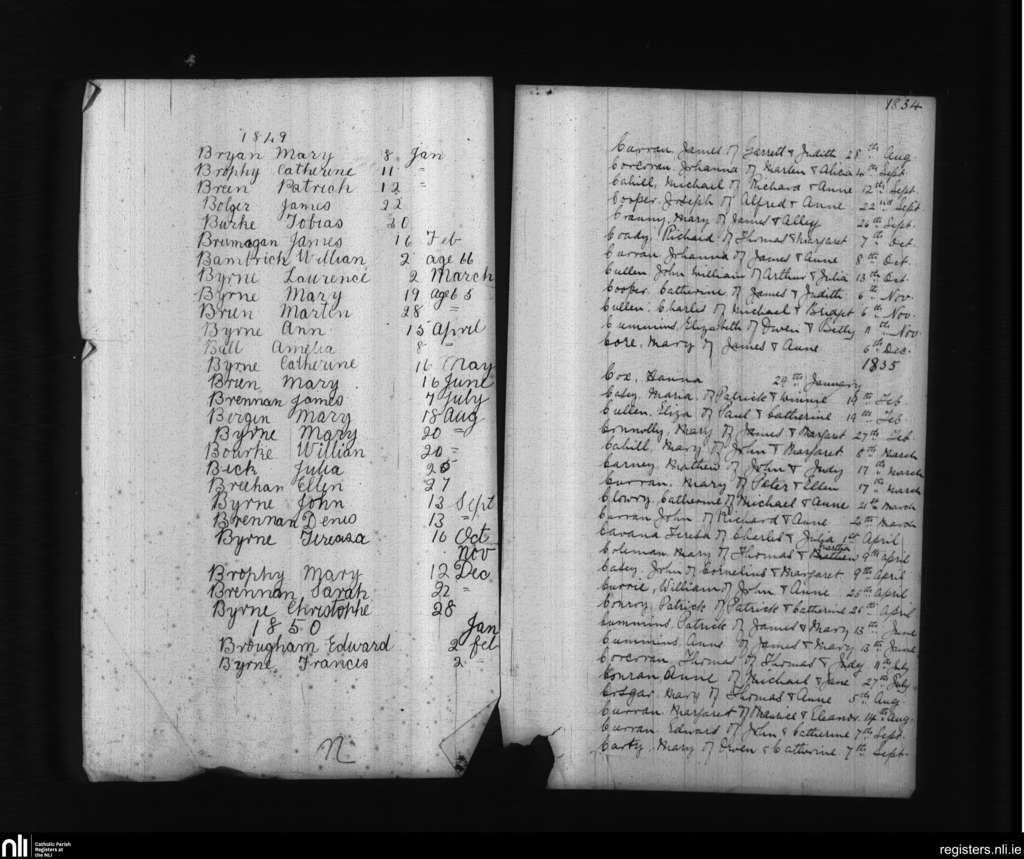 1849
Bryan Mary 8 Jan
Brophy Catherine 11 "
Bren Patrick 12 "
Bolger James 22
Burke Tobias 20
Brumagan James 16 Feb
Bambrick William 2 age 66
Byrne Laurence 2 March
Byrne Mary 19 age
Bren Marten 28 "
Byrne Ann 15 April
Ball Amelia 8 "
Byrne Catherine 16 May
Bren Mary 16 June
Brennan James 7 July
Bergin Mary 18 Aug
Byrne Mary 20 "
Bourke Willian 20 "
Beck Julia 25
Breehan Ellen 27
Byrne John 13 Sept
Brennan Denis 13 "
Byrne Tereasa 16 Oct
Nov
Brophy Mary 12 Dec
Brennan Sarah 22 "
Byrne Christophe 28
1850 Jan
Brougham Edward 2 feb
Byrne Francis 2 "
N
1834
Curran, James of Garrett & Judith 28th Aug.
Corcoran, Johanna of Marten & Alicia 4th Sept.
Cahill, Michael of Richard & Anne 12th Sept.
Cooper, Joseph of Alfred & Anne 22nd Sept
Cranny, Mary of James & Alley 26th Sept.
Coady, Richard of Thomas & Margaret 7th Oct.
Curran, Johanna of James & Anne 8th Oct.
Cullen, John William of Arthur & Julia 13th Oct.
Cooper, Catherine of James & Judith 6th Nov.
Cullen, Charles of Michael & Bridget 6th Nov.
Cummins, Elizabeth of Owen & Betty 11th Nov
Core, Mary of James & Anne 6th Dec.
1835
Cox, Hanna 29th January
Casey, Maria, of Patrick & Winnie Feb.
Cullen, Eliza of Paul & Catherine 19th Feb
Connolly, Mary of James & Margaret 27th Feb.
Cahill, Mary of John & Margaret 8th March
Carney, Mathew of John & Judy 17th March
Curran, Mary of Peter & Ellen 17th March
Clowry, Catherine of Michael & Anne 21th March
Curran John of Richard & Anne March
Cavana Teresa of Charles & Julia 1st April
Coleman, Mary of Thomas & Martha 9th April
Casey, John of Cornelius & Margaret 9th April
Currie, William of John & Anne 25th April
Conroy, Patrick of Patrick & Catherine 26th April
Cummins, Patrick of James & Mary 13th June
Cummins, Anne of James & Mary 13th June
Corcoran, Thomas of Thomas & Judy 11th July
Conran, Anne of Michael & Jane 27th July
Cosgar, Mary of Thomas & Anne 5th Aug
Curran, Margaret of Maurice & Eleanor 14th Aug.
Curran, Edward of John & Catherine 7th Sept.
Carty, Mary of Owen & Catherine 7th Sept.
nli Catholic Parish Registers at the NLI
registers.nli.ie